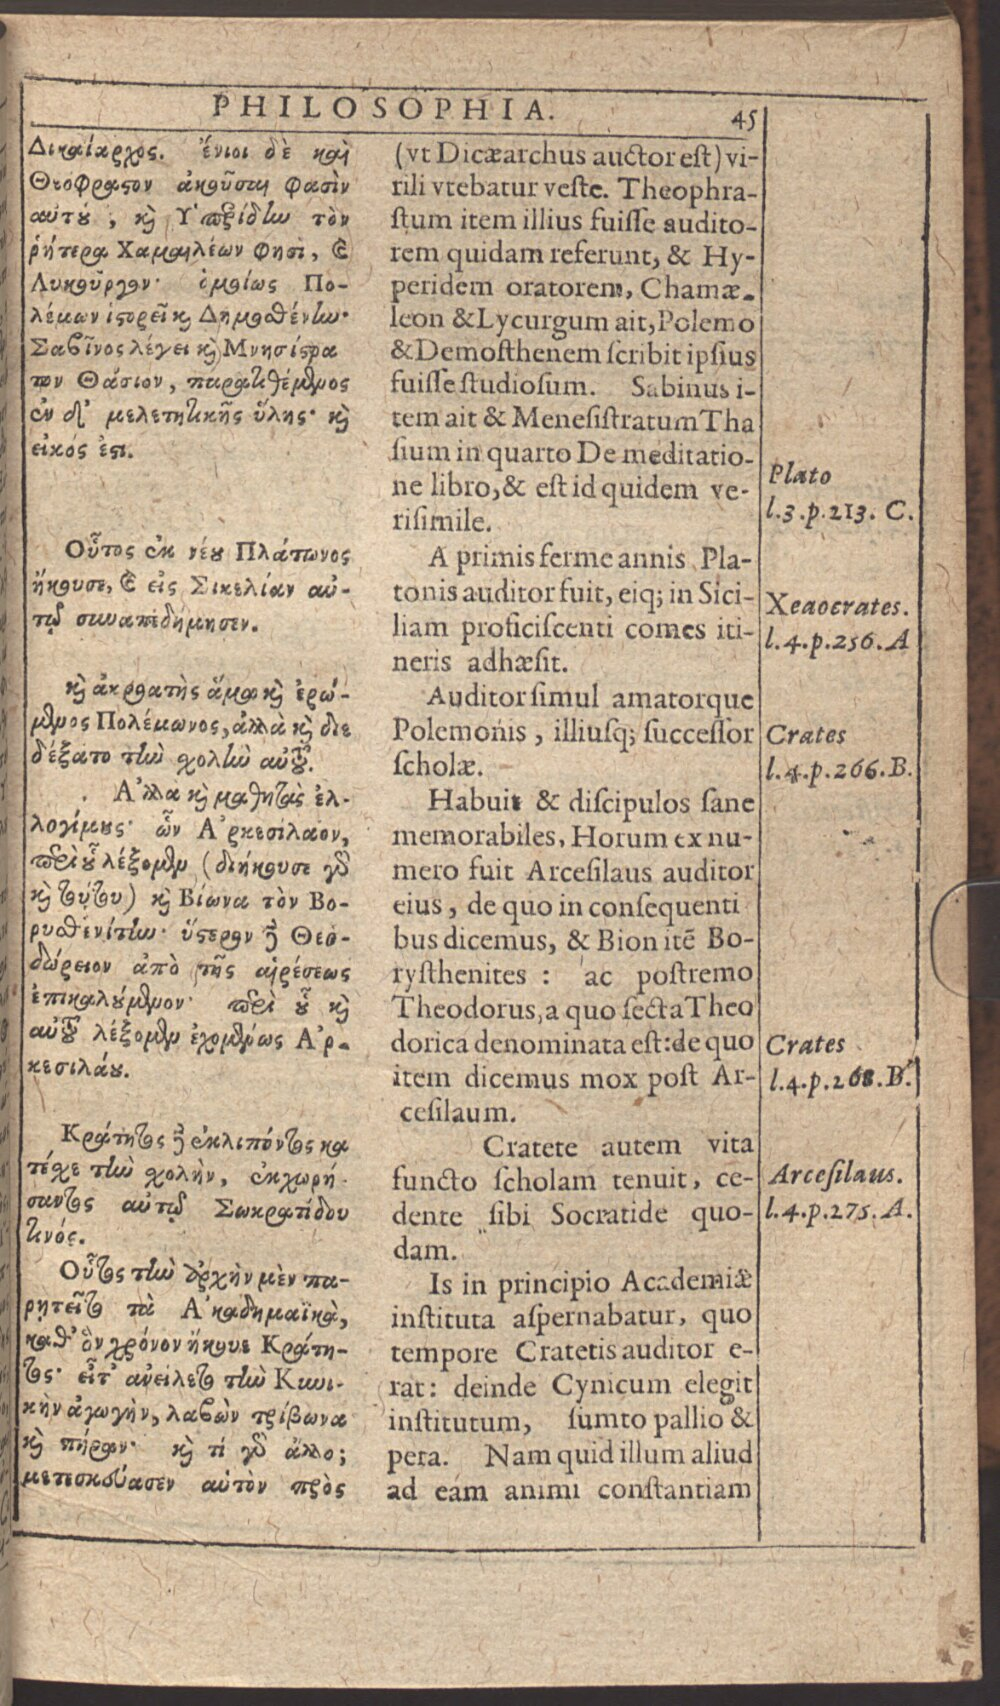 PHILOSOPHIA.
45
Δικαίαρχος. ἔνιοι δὲ καὶ
Θεόφραστον ἀκοῦσαι φασὶν
αὐτοῦ, καὶ Ὑπερίδην τὸν
ῥήτορα Χαμαιλέων φησὶ, καὶ
Λυκοῦργον· ὁμοίως Πο-
λέμων ἱστορεῖ καὶ Δημοσθένην·
Σαβῖνος λέγει καὶ Μνησίστρα
τον Θάσιον, παρατιθέμενος
ἐν δ΄ μελετητικῆς ὕλης· καὶ
εἰκός ἐστι.
Οὗτος ἐκ νέου Πλάτωνος
ἤκουσε, καὶ εἰς Σικελίαν αὐ-
τῷ συναπεδήμησεν.
καὶ ἀκροατὴς ἅμα καὶ ἐρώ-
μενος Πολέμωνος, ἀλλὰ καὶ διε
δέξατο τὴν σχολὴν αὐτοῦ.
Ἀλλὰ καὶ μαθητὰς ἐλ-
λογίμους· ὧν Ἀρκεσίλαον,
περὶ οὗ λέξομεν (διήκουσε γὰρ
καὶ τούτου) καὶ Βίωνα τὸν Βο-
ρυσθενίτην· ὕστερον δὲ Θεο-
δώρειον ἀπὸ τῆς αἱρέσεως
ἐπικαλούμενον· περὶ οὗ καὶ
αὐτοῦ λέξομεν ἐχομένως Ἀρ-
κεσιλάου.
Κράτητος δὲ ἐκλιπόντος κα
τέσχε τὴν σχολὴν, ἐκχωρή-
σαντος αὐτῷ Σωκρατίδου
τινός.
Οὗτος τὴν ἀρχὴν μὲν πα-
ρῃτεῖτο τὰ Ἀκαδημαϊκὰ,
καθ' ὃν χρόνον ἤκουε Κράτη-
τος· εἶτ' ἀνείλετο τὴν Κυνι-
κὴν ἀγωγὴν, λαβὼν τρίβωνα
καὶ πήραν· καὶ τί γὰρ ἄλλο;
μετεσκεύασεν αὐτὸν πρὸς
(vt Dicæarchus auctor est) vi-
rili vtebatur veste. Theophra-
stum item illius fuisse audito-
rem quidam referunt, & Hy-
peridem oratorem, Chamæ-
leon & Lycurgum ait, Polemo
& Demosthenem scribit ipsius
fuisse studiosum. Sabinus i-
tem ait & Menesistratum Tha
sium in quarto De meditatio-
ne libro, & est id quidem ve-
risimile.
A primis ferme annis Pla-
tonis auditor fuit, eiq; in Sici-
liam proficiscenti comes iti-
neris adhæsit.
Auditor simul amatorque
Polemonis, illiusq; successor
scholæ.
Habuit & discipulos sane
memorabiles, Horum ex nu-
mero fuit Arcesilaus auditor
eius, de quo in consequenti
bus dicemus, & Bion itē Bo-
rysthenites : ac postremo
Theodorus, a quo secta Theo
dorica denominata est: de quo
item dicemus mox post Ar-
cesilaum.
Cratete autem vita
functo scholam tenuit, ce-
dente sibi Socratide quo-
dam.
Is in principio Academiæ
instituta aspernabatur, quo
tempore Cratetis auditor e-
rat: deinde Cynicum elegit
institutum, sumto pallio &
pera. Nam quid illum aliud
ad eam animi constantiam
Plato
l.3.p.213. C.
Xeaocrates.
l.4.p.256. A
Crates
l.4.p.266. B.
Crates
l.4.p.268. B.
Arcesilaus.
l.4.p.275. A.